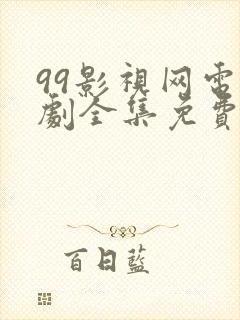 99影視网电
劇全集免費
百日藍